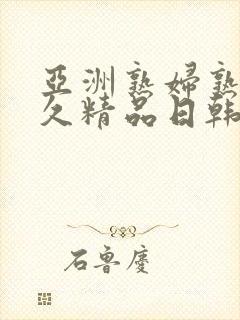 亞洲熟婦熟
久精品日韩
石鲁慶